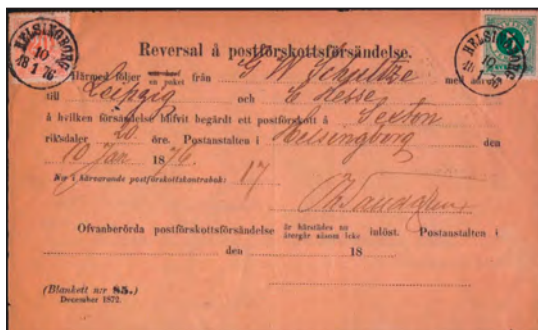 HELSINGBORG 10 1 76
HELSINGBORG 10 1
Reversal å postförskottsförsändelse.
Härmed följer ett paket från G W Schultze med adress
till Leipzig och E Hesse
å hvilken försändelse blifvit begärdt ett postförskott å Sexton
riksdaler 20 öre. Postanstalten i Helsingborg den
10 Jan 1876.
N:r i härvarande postförskottskontrabok: 17
Ofvanberörda postförskottsförsändelse är härstädes nu inlöst. Postanstalten i
återgår såsom icke
den 18
(Blankett n:r 85.)
December 1872.